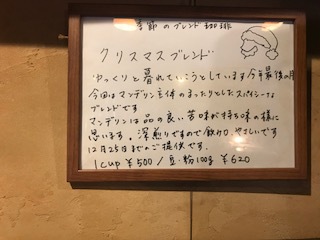 季節のブレンド珈琲
クリスマスブレンド
ゆっくりと暮れていこうとしています今年最後の月
今回はマンデリン主体のまったりとしたスパイシーな
ブレンドです
マンデリンは品の良い苦味が持ち味の様に
思います。深煎りですので飲み口やさしいです
12月25日までのご提供です。
1cup ¥500 / 豆・粉100g ¥620